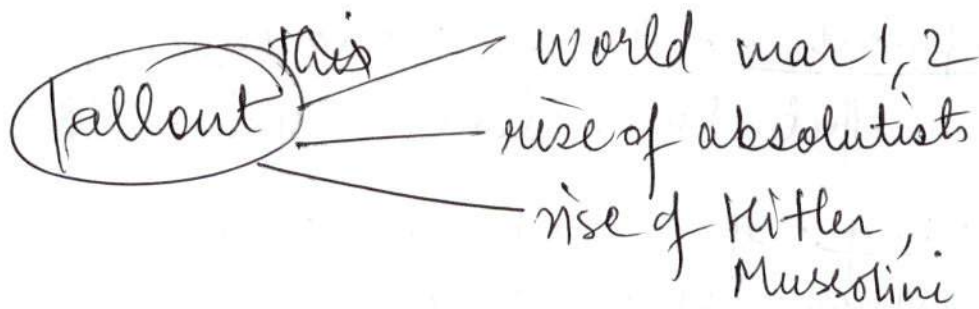 this
fallout
world war 1, 2
rise of absolutists
rise of Hitler,
Mussolini